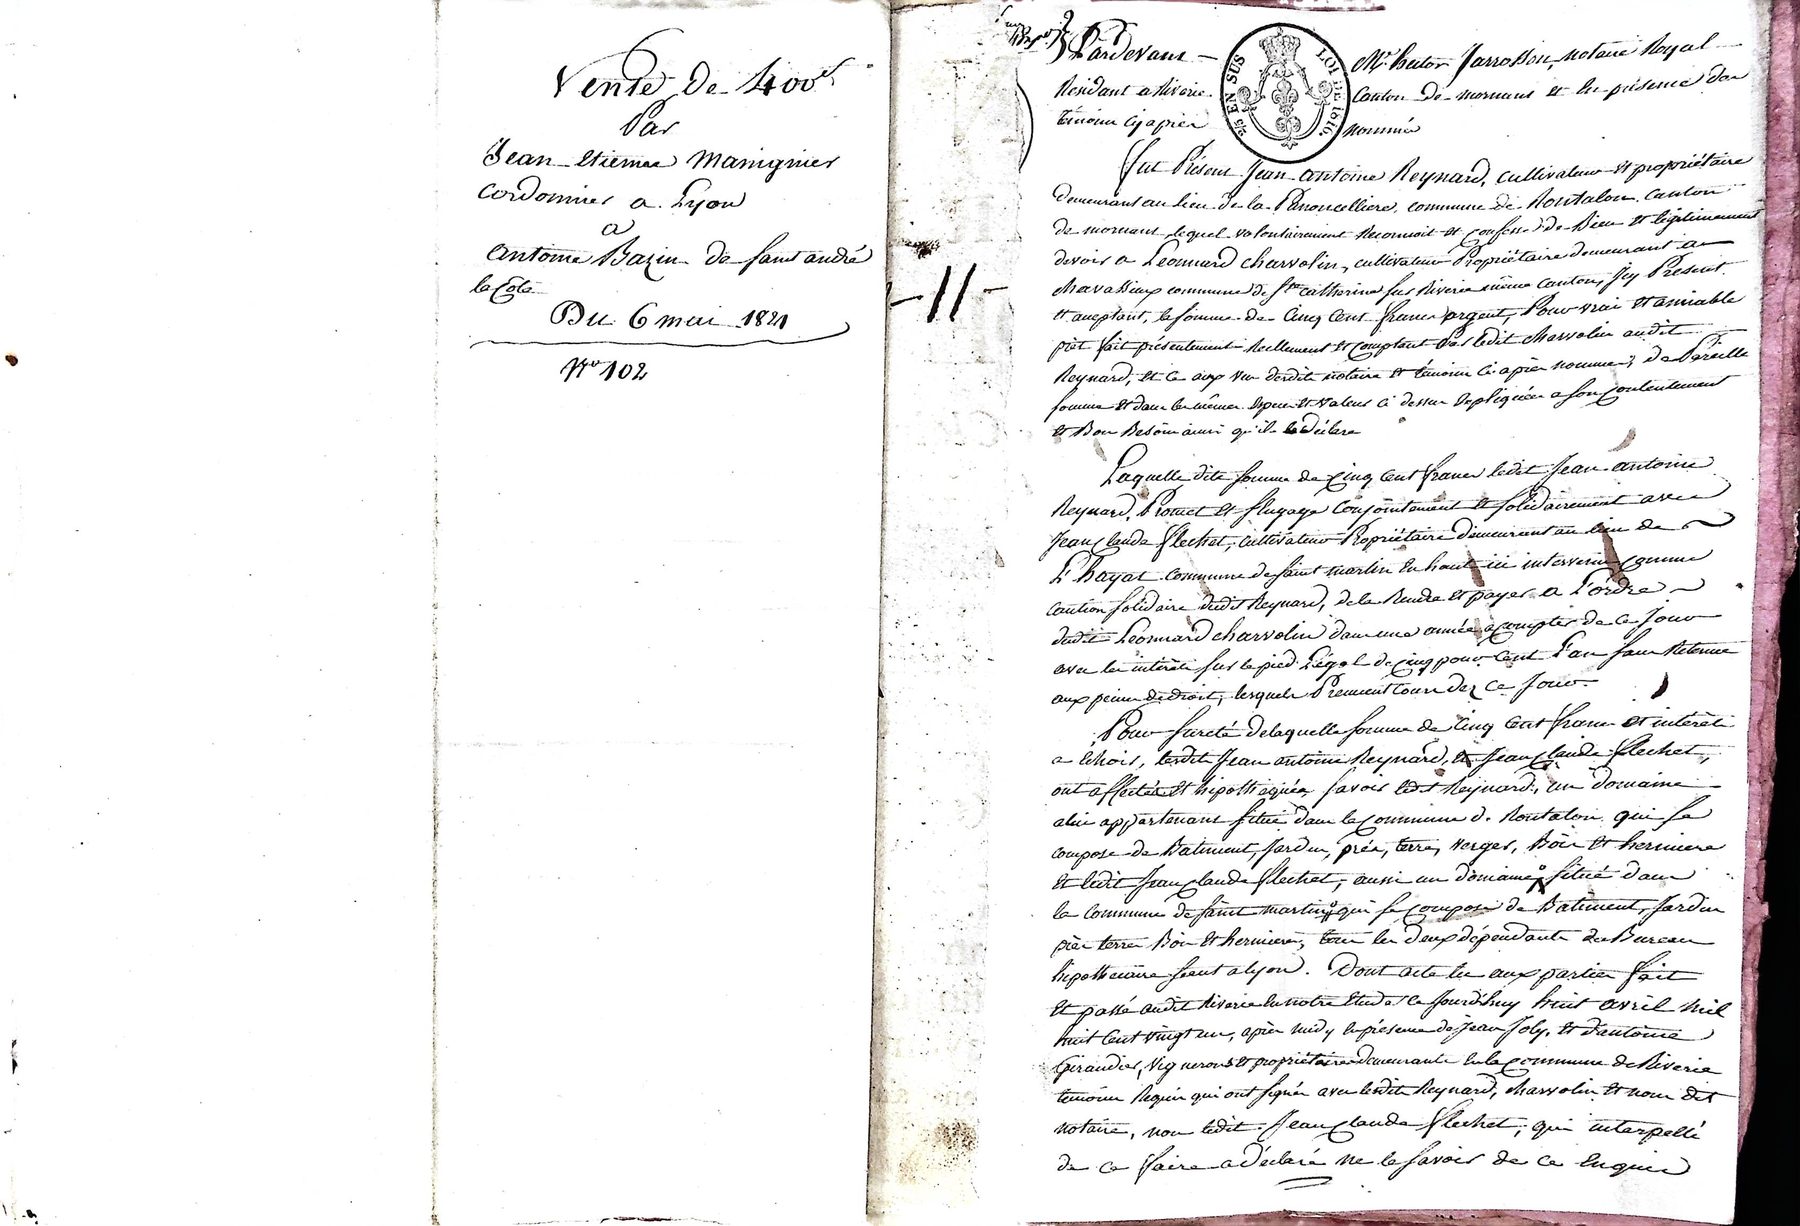 Vente de 400#
Par
Jean Etienne Manignier
cordonnier a Lyon
a
antoine Bazin de saint andré
la Côte
Du 6 mai 1821
N° 102
-11-
Pardevant Me hector Jarrosson, notaire Royal
Résidant a Riverie canton de mornant et en présence des
témoins cy après nommés
2/5 EN SUS LOI DE 1816.
fut Présent Jean antoine Reynard, cultivateur et propriétaire
demeurant au lieu de la Penoncelliere commune de Rontalon canton
de mornant lequel volontairement Reconnoit et Confesse de Bien et légitimement
devoir a Leonnard charvolin, cultivateur Propriétaire demeurant au
chavassieux commune de ste catherine sur Riverie même canton, Icy Présent
et acceptant, la somme de Cinq Cent francs argent, Pour vrai et amiable
prêt fait présentement Réellement et comptant Par ledit charvolin audit
Reynard, et ce aux vu desdits notaire et témoins ci après nommés, de Pareille
somme et dans les mêmes espèces et valeur ci dessus expliquées a son contentement
et Bon Besoin ainsi qu'il le déclare
Laquelle dite somme de Cinq Cent francs ledit Jean antoine
Reynard, Promet et s'engage Conjointement et solidairement avec
Jean Claude flechet, cultivateur Propriétaire demeurant au lieu de
L'hayat commune de saint martin en haut ici intervenu comme
caution solidaire dudit Reynard, de la Rendre et payer a L'ordre
dudit Léonnard charvolin dans une année a compter de ce Jour
avec les intérêts sur le pied Légal de Cinq pour Cent L'an sans Retenue
aux peines de droit, lesquels Prennent cours dez ce Jour
Pour sureté de laquelle somme de Cinq Cent francs et intérêts
a échoir, lesdit Jean antoine Reynard, et Jean Claude flechet,
ont affectés et hipothequés, savoir ledit Reynard, un domaine
a lui appartenant situé dans la Commune de Rontalon qui se
compose de Batiment, Jardin, prés, terres, verger, Bois et hermieres
et ledit Jean Claude flechet, aussi un domaine situé dans
la Commune de saint martin qui se compose de Batiment, Jardin
prés terres Bois et hermieres, tous les deux dépendants du Bureau
hipothecaire séant a lyon. Dont acte lu aux parties fait
et passé audit Riverie en notre Etude ce Jourd'huy huit avril mil
huit Cent vingt un, après midy en présence de Jean Joly, et d'antoine
Girandier, vignerons et propriétaires demeurants en la commune de Riverie
témoins Requis qui ont signés avec lesdits Reynard, charvolin et nous dit
notaire, non ledit Jean Claude flechet, qui interpellé
de ce faire a déclaré ne le savoir de ce Enquis